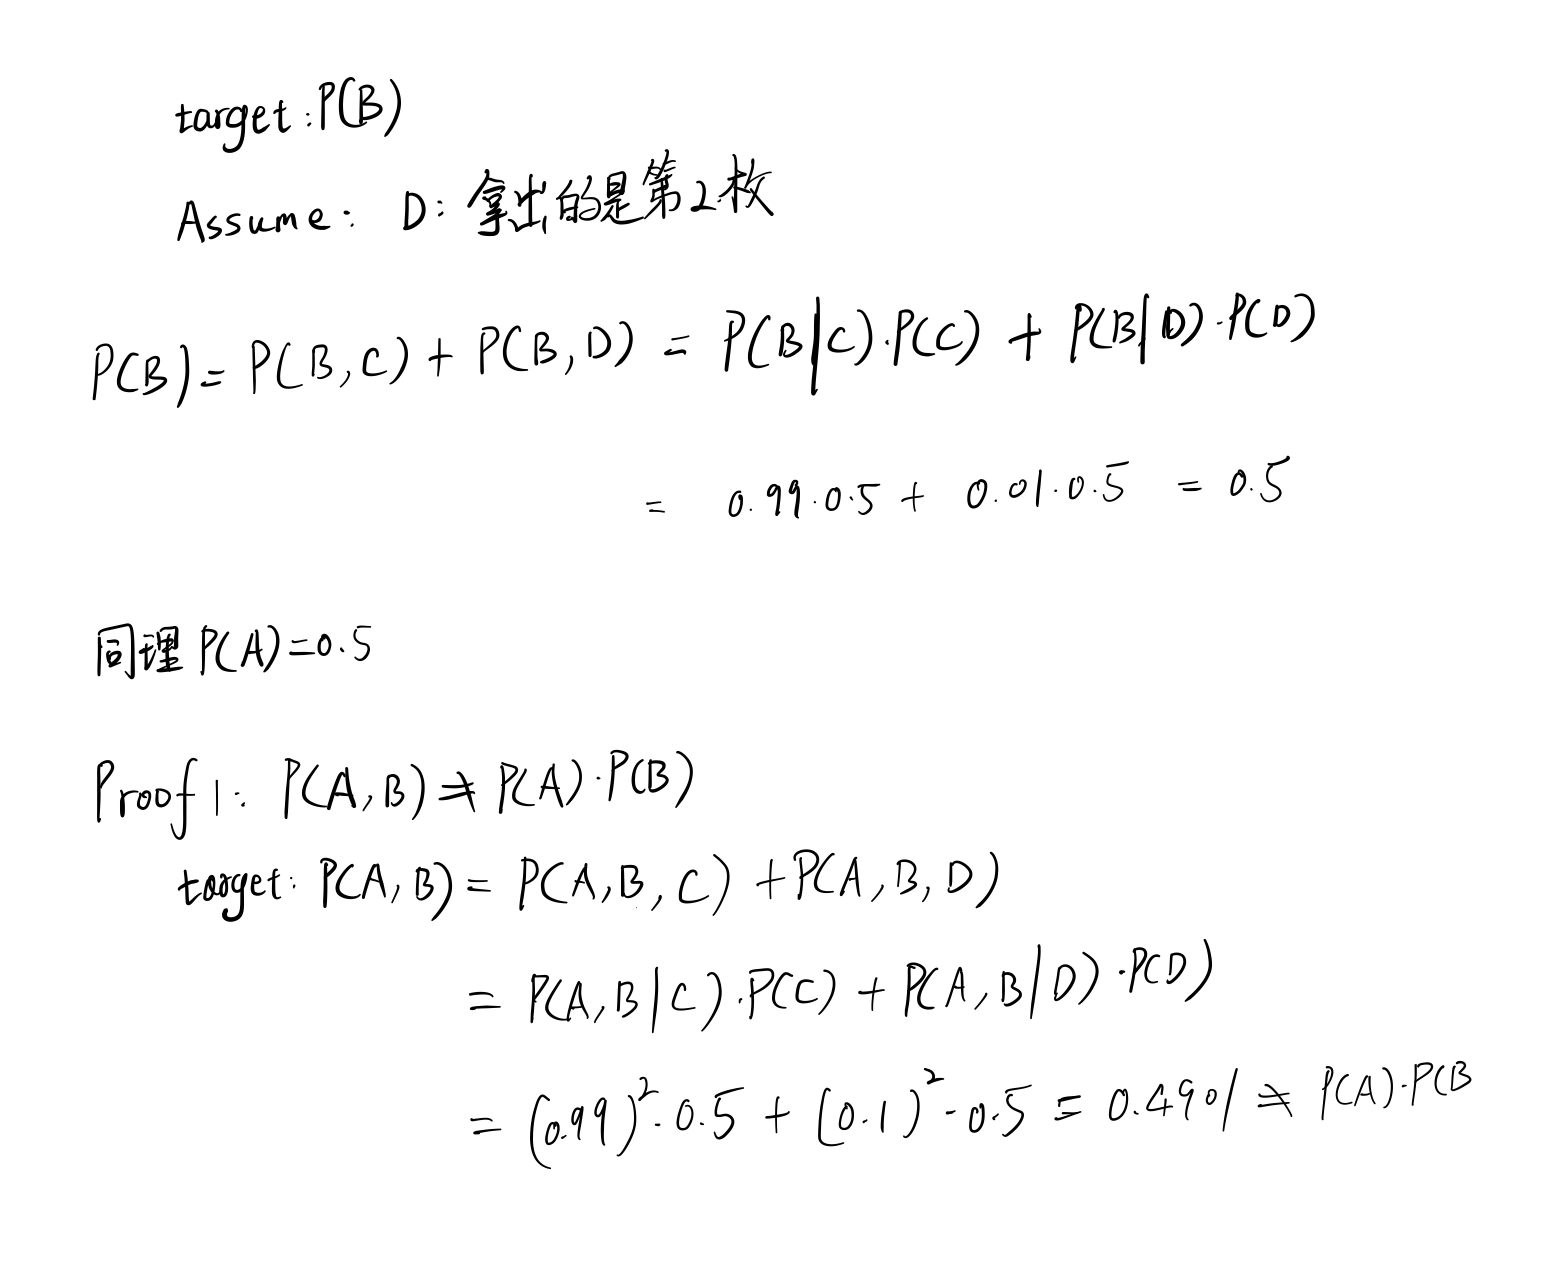 target: P(B)
Assume: D: 拿出的是第2枚
P(B) = P(B,C) + P(B,D) = P(B|C)·P(C) + P(B|D)·P(D)
= 0.99·0.5 + 0.01·0.5 = 0.5
同理 P(A)=0.5
Proof 1: P(A,B) ≠ P(A)·P(B)
target: P(A,B) = P(A,B,C) + P(A,B,D)
= P(A,B|C)·P(C) + P(A,B|D)·P(D)
= (0.99)²·0.5 + (0.1)²·0.5 = 0.4901 ≠ P(A)·P(B